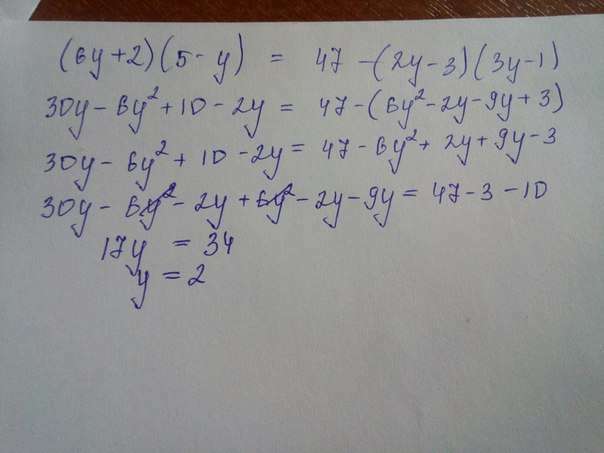 (6y+2)(5-y) = 47-(2y-3)(3y-1)
30y-6y²+10-2y = 47-(6y²-2y-9y+3)
30y-6y²+10-2y = 47-6y²+2y+9y-3
30y-6y²-2y+6y²-2y-9y = 47-3-10
17y = 34
y = 2